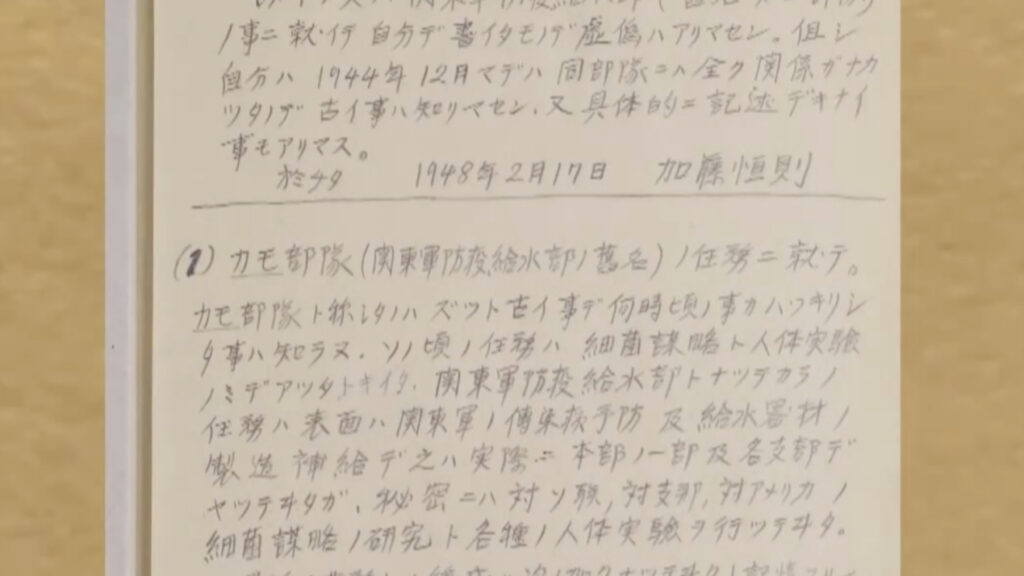 ノ事ニ就イテ自分デ書イタモノデ虚偽ハアリマセン。但シ
自分ハ 1944年12月マデハ同部隊ニハ全ク関係ガナカ
ツタノデ古イ事ハ知リマセン、又具体的ニ記述デオナイ
事モアリマス。
於チタ 1948年2月17日 加藤恒則
(1) カモ部隊(関東軍防疫給水部ノ舊名)ノ任務ニ就テ。
カモ部隊ト称シタノハズツト古イ事デ何時頃ノ事カハツキリシ
タ事ハ知ラヌ、ソノ頃ノ任務ハ細菌謀略ト人体実験
ノミデアツタトキイタ、関東軍防疫給水部トナツテカラノ
任務ハ表面ハ関東軍ノ傳染病予防及給水器材ノ
製造補給デ之ハ実際ニ本部ノ一部及各支部デ
ヤツテヰタガ、秘密ニハ対ソ聯,対支那,対アメリカノ
細菌謀略ノ研究ト各種ノ人体実験ヲ行ツテヰタ。